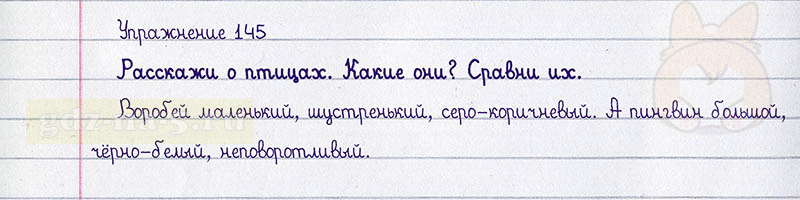 Упражнение 145
Расскажи о птицах. Какие они? Сравни их.
Воробей маленький, шустренький, серо-коричневый. А пингвин большой,
чёрно-белый, неповоротливый.